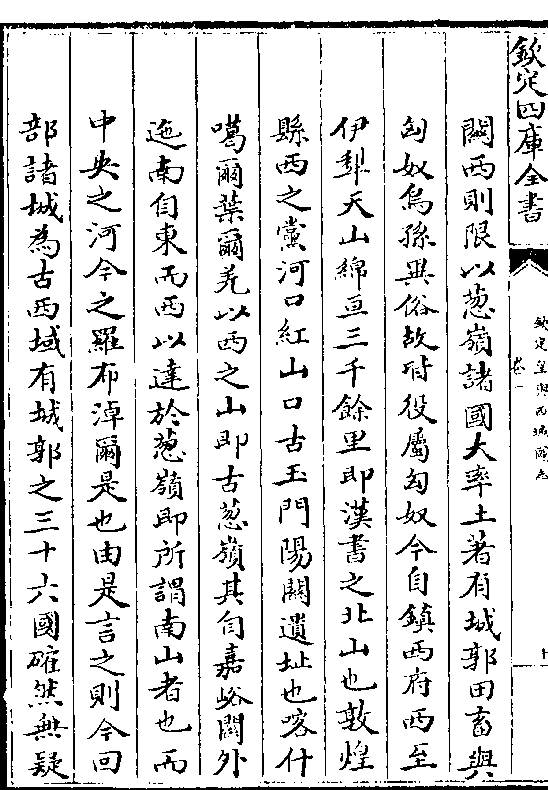 欽定四庫全書
欽定皇輿西域圖志
卷一
關西則限以葱嶺諸國大率土著有城郭田畜與
匈奴烏孫異俗故皆役屬匈奴今自鎮西府西至
伊犁天山綿亘三千餘里即漢書之北山也敦煌
縣西之黨河口紅山口古玉門陽關遺址也喀什
噶爾葉爾羌以西之山即古葱嶺其自嘉峪關外
迤南自東而西以達於葱嶺即所謂南山者也而
中央之河今之羅布淖爾是也由是言之則今回
部諸城為古西域有城郭之三十六國確然無疑